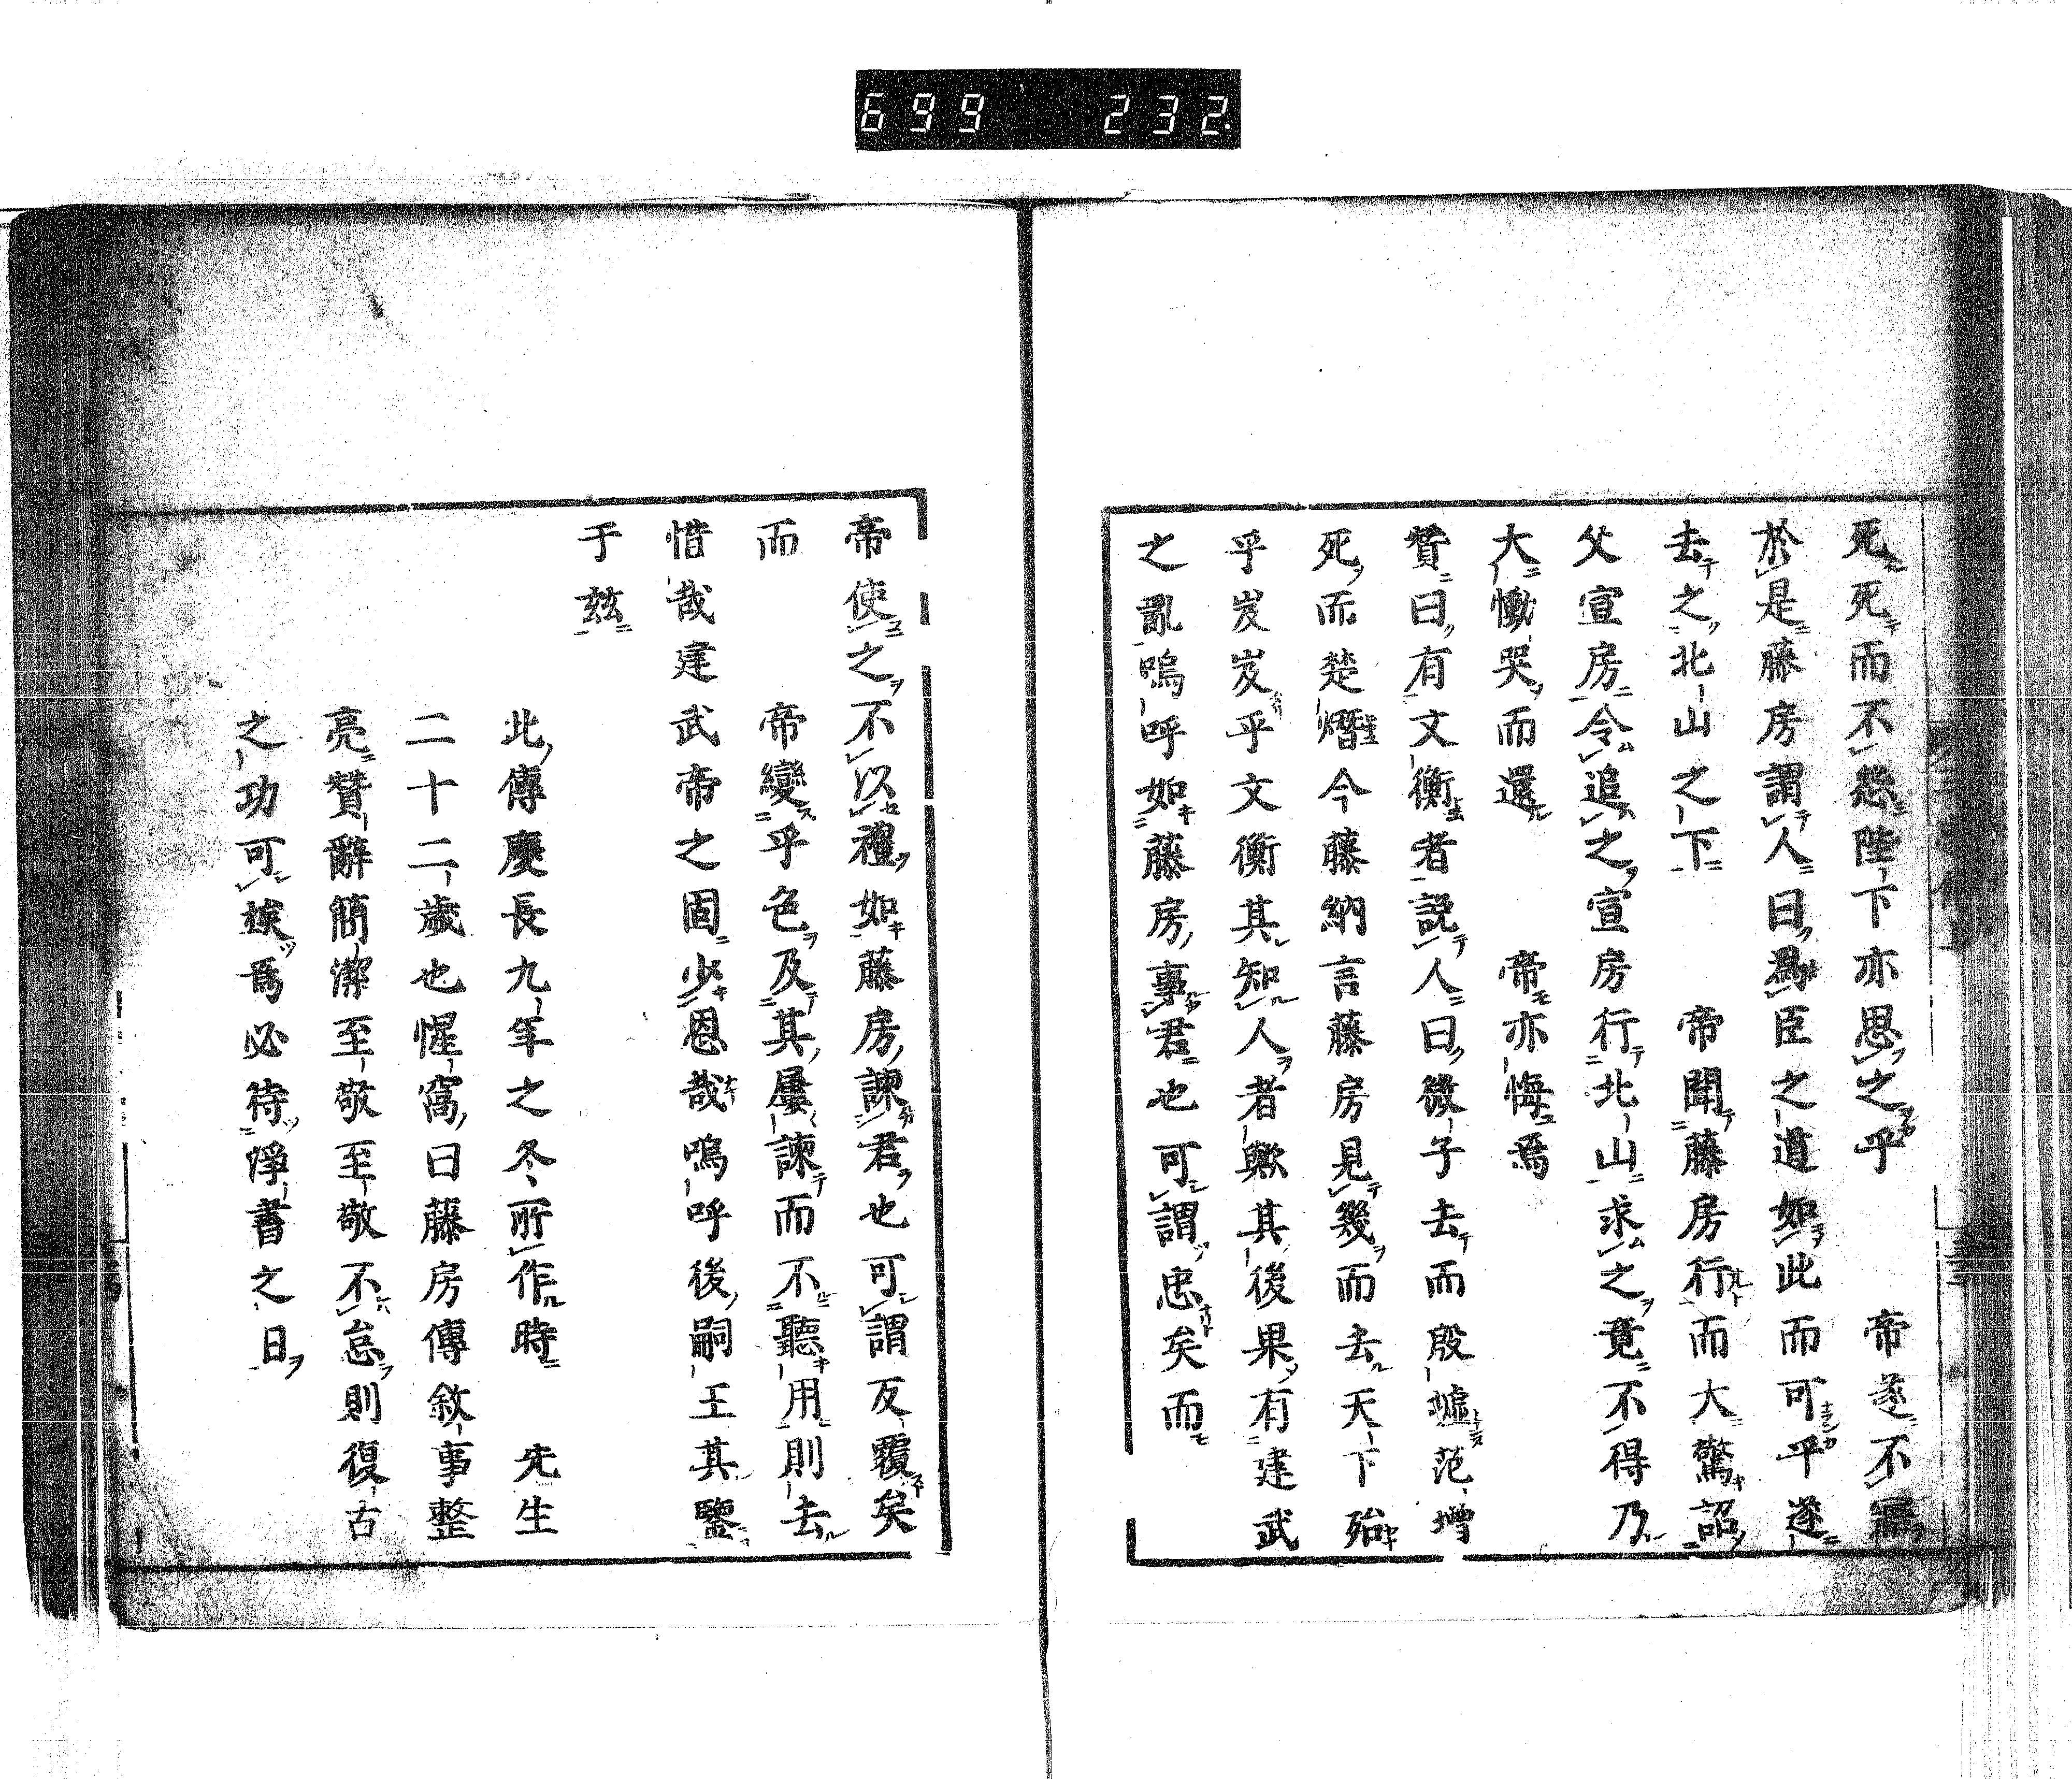 699 232.
死死而不怨陛下亦思之乎 帝遂不寤
於是藤房謂人曰爲臣之道如此而可乎遂
去之北山之下 帝聞藤房行而大驚詔
父宣房令追之宣房行北山求之竟不得乃
大慟哭而還 帝亦悔焉
贊曰有文衡者説人曰微子去而殷墟范增
死而楚熸今藤納言藤房見幾而去天下殆
乎岌岌乎文衡其知人者歟其後果有建武
之亂嗚呼如藤房事君也可謂忠矣而
帝使之不以禮如藤房諫君也可謂反覆矣
而 帝變乎色及其屢諫而不聽用則去
惜哉建武帝之固少恩哉嗚呼後嗣王其鑒
于茲
此傳慶長九年之冬所作時 先生
二十二歳也惺窩曰藤房傳敘事整
亮贊辭簡潔至敬至敬不怠則復古
之功可俟焉必待淨書之日